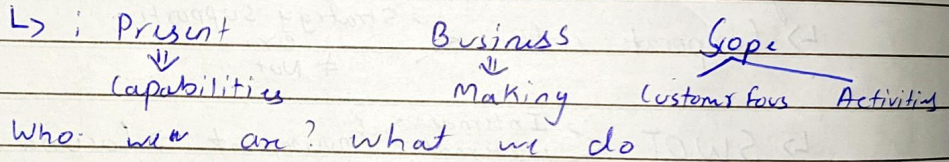 L> : Present Business Scope
⇓ ⇓
Capabilities Making Customer Focus Activities
Who we are? What we do